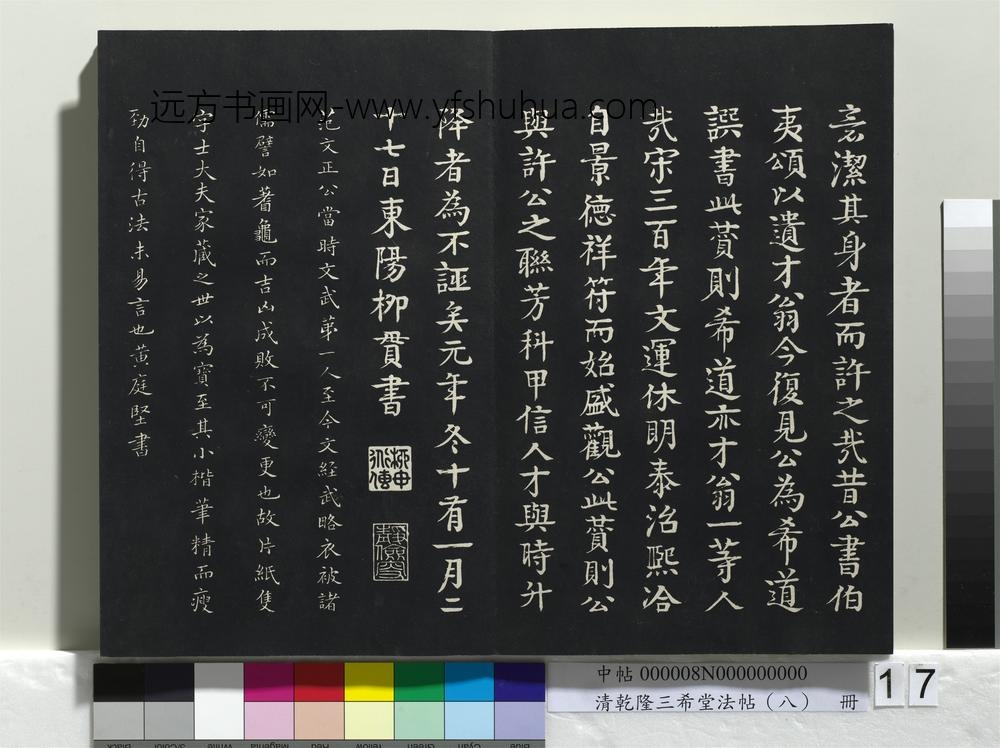 袁潔其身者而許之哉昔公書伯
夷頌以遺才翁今復見公為希道
譔書此薲則希道亦才翁一等人
哉宋三百年文運休明泰治熙洽
自景德祥符而始盛觀公此薲則公
與許公之聯芳科甲信人才與時升
降者為不誣矣元年冬十有一月二
十七日東陽柳貫書
范文正公當時文武第一人至今文経武略衣被諸
儒譬如蓍龜而吉凶成敗不可變更也故片紙隻
字士大夫家藏之世以為寳至其小楷筆精而瘦
勁自得古法未易言也黃庭堅書
远方书画网-www.yfshuhua.com
中帖 000008N000000000
清乾隆三希堂法帖（八） 冊
17
Black
3/Color
White
Magenta
Red
Yellow
Green
Cyan
Blue